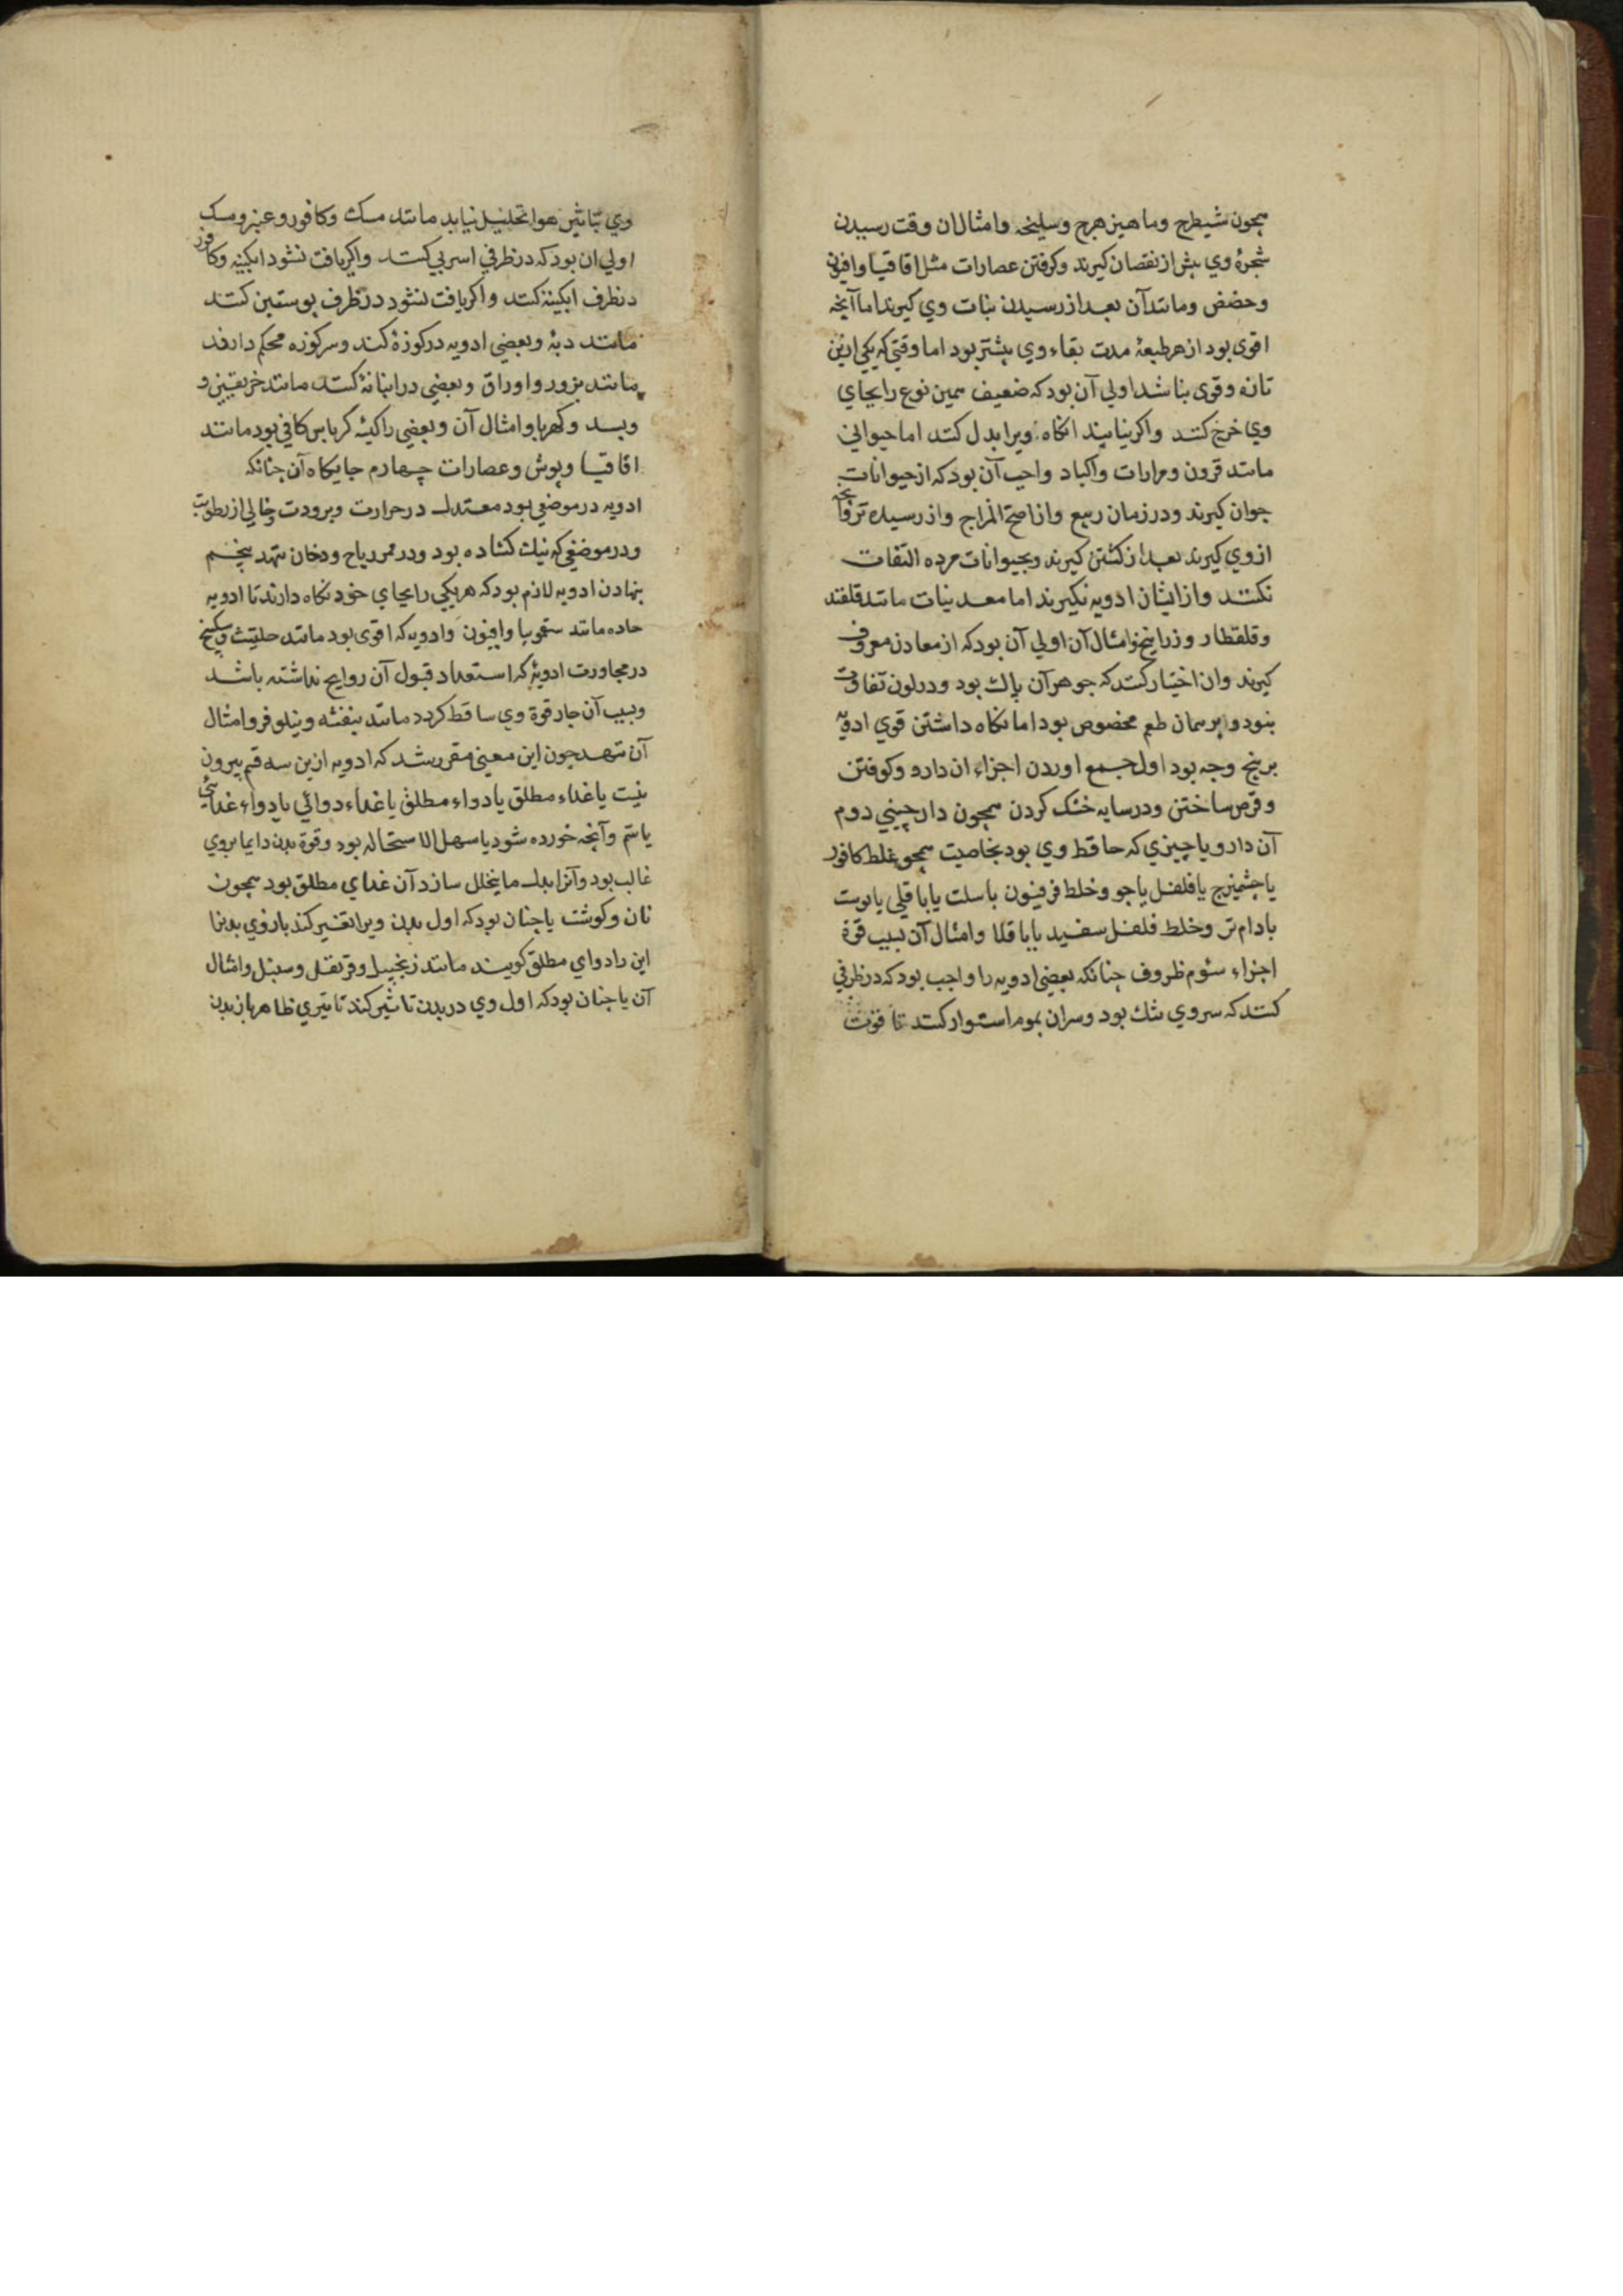 همچون شیطرج وماهیزهرج وسلیخه وامثال ان وقت رسیدن
شجرهٔ وی پیش از نقصان کیرند وکرفتن عصارات مثل اقاقیا وافیون
وحضض ومانند آن بعد از رسیدن نبات وی کیرند اما آنچه
اقوی بود از هر طبعهٔ مدت بقاء وی بیشتر بود اما وقتی که یکی ازین
تازه وقوی نباشد اولی آن بود که ضعیف همین نوع را بجای
وی خرج کنند واکر نیابند انکاه ویرا بدل کنند اما حیوانی
مانند قرون ومرارات واکباد واجب آن بود که از حیوانات
جوان کیرند ودر زمان ربیع واز اصح المزاج واز رسیده تر وآنچه
ازوی کیرند بعد از کشتن کیرند وبحیوانات مرده التفات
نکنند واز ایشان ادویه نکیرند اما معدنیات مانند قلقند
وقلقطار وزرانیخ وامثال آن اولی آن بود که از معادن معروف
کیرند وان اختیار کنند که جوهر آن پاک بود ودر لون تفاوت
نبود وبر همان طعم مخصوص بود اما نکاه داشتن قوی ادویه
بر پنج وجه بود اول جمع اوردن اجزاء ان دارو وکوفتن
وقرص ساختن ودر سایه خشک کردن همچون دارچینی دوم
آن دارو یا چیزی که حافظ وی بود بخاصیت همچو خلط کافور
یا چشمیزج یا فلفل یا جو وخلط فرفیون با سلت یا باقلی یا پوست
بادام تر وخلط فلفل سفید با باقلا وامثال آن بسبب قوة
اجزاء سئوم ظروف چنانکه بعضی ادویه را واجب بود که در ظرفی
کنند که سر وی تنک بود وسر ان بموم استوار کنند تا قوت
وی بتاثیر هوا تحلیل نیابد مانند مسک وکافور وعنبر ومسک
اولی ان بود که در ظرفی اسربی کنند واکر یافت نشود ابکینه وکافور
در ظرف ابکینه کنند واکر یافت نشود در ظرف پوستین کنند
مانند دبهٔ وبعضی ادویه در کوزهٔ کنند وسر کوزه محکم دارند
مانند بزور واوراق وبعضی در انبانهٔ کنند مانند خربقیین و
وبسد وکهربا وامثال آن وبعضی را کیسهٔ کرباس کافی بود مانند
اقاقیا وبوش وعصارات چهارم جایکاه آن چنانکه
ادویه در موضعی بود معتدل در حرارت وبرودت وخالی از رطوبت
ودر موضعی که نیک کشاده بود ودر ممر ریاح ودخان ننهد پنجم
نهادن ادویه لازم بود که هر یکی را بجای خود نکاه دارند تا ادویه
حاده مانند سقمونیا وافیون وادویه که اقوی بود مانند حلتیت وسکبینج
در مجاورت ادویهٔ که استعداد قبول آن روایح نداشته باشد
وبسبب آن جار قوة وی ساقط کردد مانند بنفشه ونیلوفر وامثال
آن ننهد چون این معنی مقرر شد که ادویه ازین سه قسم بیرون
نیست یا غذاء مطلق یا دواء مطلق یا غذاء دوائی یا دواء غذائی
یا سم وآنچه خورده شود یا سهل الاستحاله بود وقوة بدن دایما بروی
غالب بود وآنرا بدل ما یتحلل سازد آن غذای مطلق بود همچون
نان وکوشت یا چنان بود که اول بدن ویرا تغییر کند باز وی بدنرا
این را دوای مطلق کویند مانند زنجبیل وقرنفل وسنبل وامثال
آن یا چنان بود که اول وی در بدن تاثیر کند تاثیری ظاهر باز بدن